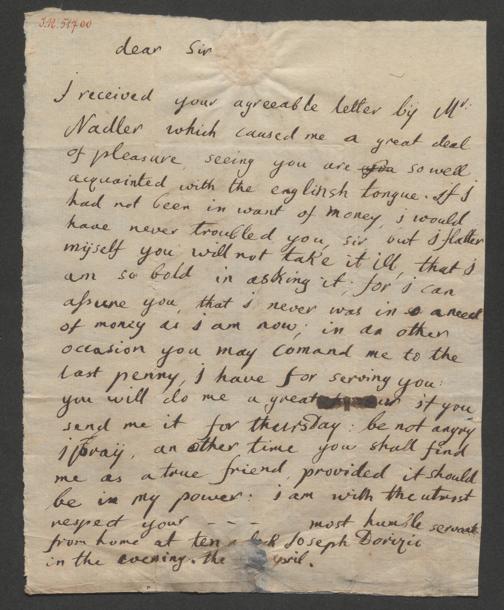 J.N. 51700
dear Sir
I received your agreeable letter by Mr.
Nadler which caused me a great deal
of pleasure, seeing you are so well
acquainted with the englihsh tongue. If j
had not been in want of money, j would
have never troubled you, sir, but j flatter
myself you will not take it ill, that j
am so bold in asking it; for j can
assure you, that j never was in a need
of money as j am now; in an other
occasion you may comand me to the
last penny, j have for serving you:
you will do me a great if you
send me it for thursday: be not angry
j pray, an other time you shall find
me as a true friend, provided it should
be in my power: i am with the utmost
respect your - - - most humble servant
from home at ten Joseph
in the evening. the pril.